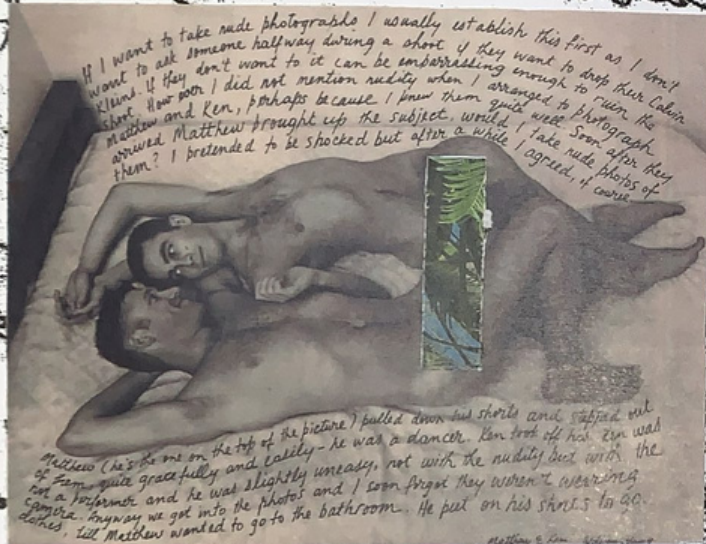 If I want to take nude photographs I usually establish this first as I don't
want to ask someone halfway during a shoot if they want to drop their Calvin
Kleins. If they don't want to it can be embarrassing enough to ruin the
shoot. However I did not mention nudity when I arranged to photograph
Matthew and Ken, perhaps because I knew them quite well. Soon after they
arrived Matthew brought up the subject, would I take nude photos of
them? I pretended to be shocked but after a while I agreed, of course.
Matthew (he's the one on the top of the picture) pulled down his shorts and stepped out
of them, quite gracefully and easily - he was a dancer. Ken took off his. Ken was
not a performer and he was slightly uneasy, not with the nudity but with the
camera. Anyway we got into the photos and I soon forgot they weren't wearing
clothes, till Matthew wanted to go to the bathroom. He put on his shorts to go.
Matthew & Ken